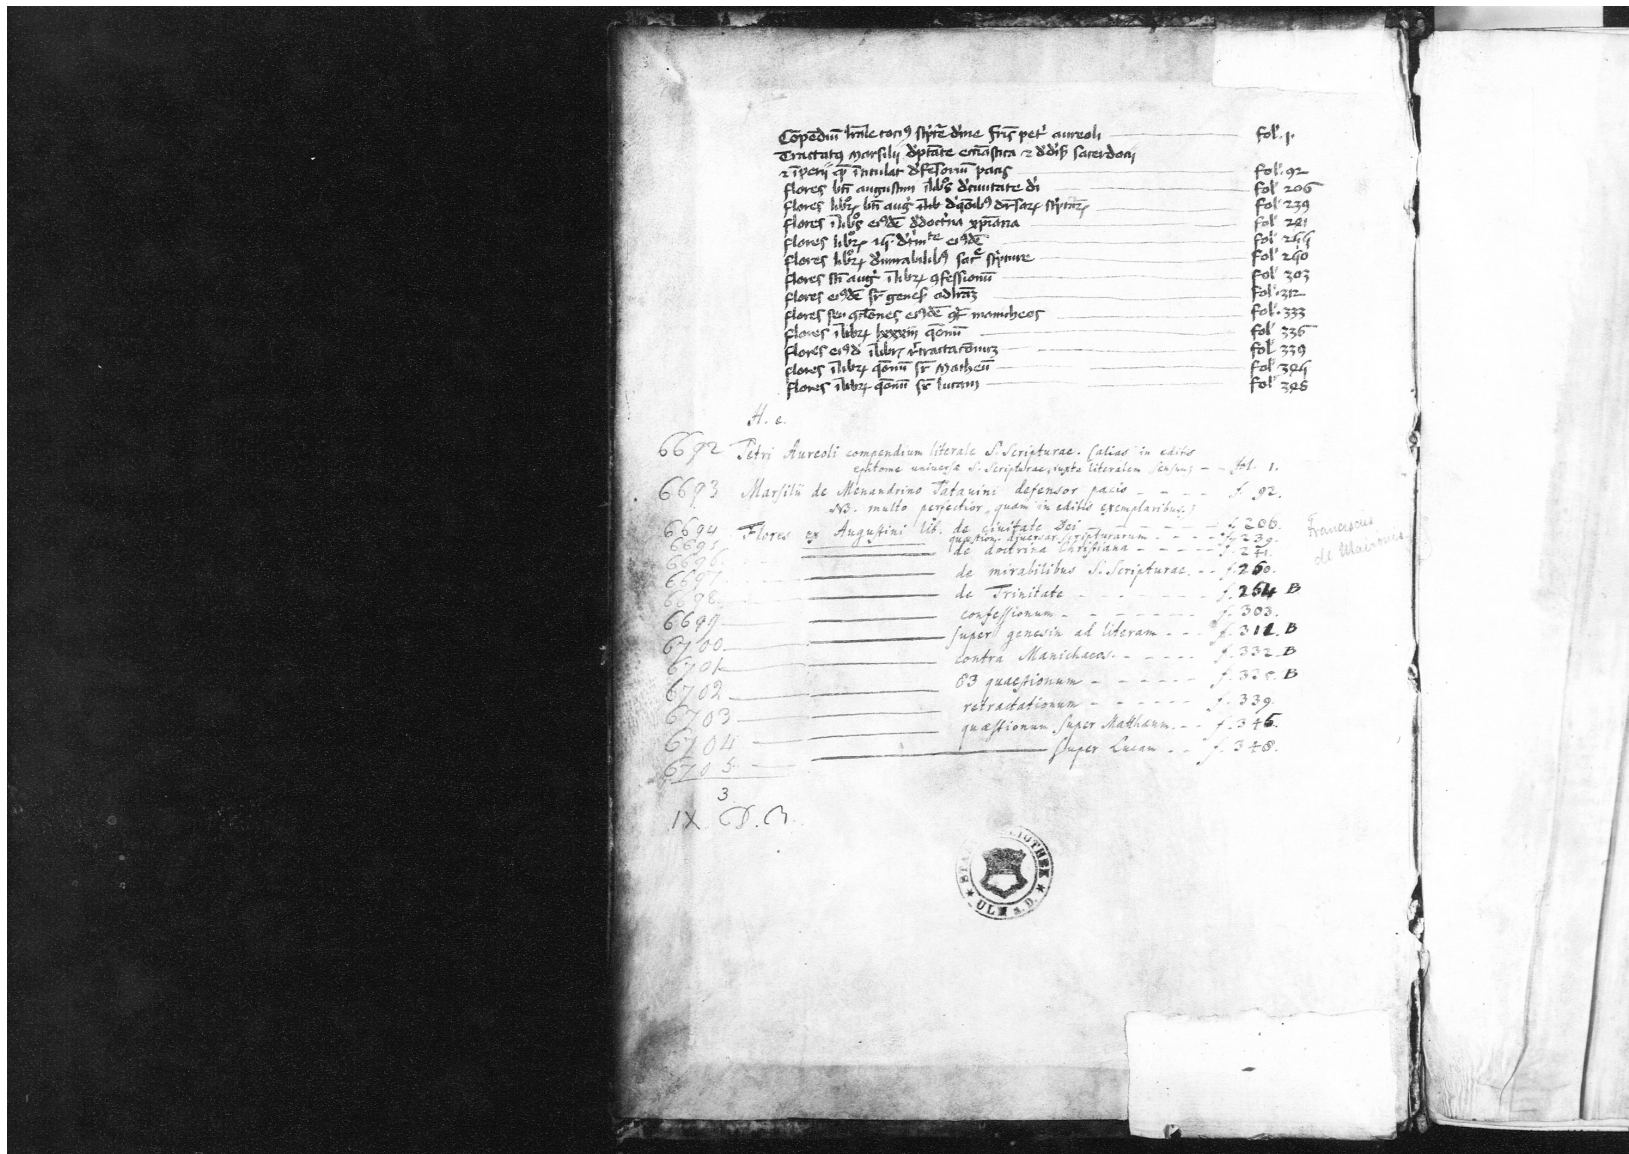 Co̅pe̅diu̅ lr̅ale toci⁹ sc̅pt͛e di͛ne fr̅is pet͛ aureoli fol͛. 1.
Tractat⁹ Marsilij
fol͛. 92
flores bt̅i augustini i̅ lib͛s d͛ ciuitate d͛i fol͛ 206
flores fol͛ 239
flores i̅ lib͛s ei⁹de̅ d͛ doct͛na xp̅iana fol͛ 241
flores fol͛ 244
flores fol͛ 260
flores st̅i aug͛ i̅ libꝝ ꝯfessionu̅ fol͛ 303
flores ei⁹de̅ sr̅ genes͛ ad lr̅aꝫ fol͛. 312
flores seu q̅stones ei⁹de̅ manicheos fol͛. 333
flores i̅ libꝝ lxxxiij q̅onu̅ fol͛ 336
flores ei⁹d i̅ libꝝ r͛tractac̅onuꝫ fol͛ 339
flores i̅ libꝝ q̅onu̅ sr̅ Matheu̅ fol͛ 346
flores i̅ libꝝ q̅onu̅ sr̅ lucam fol͛ 348
H. e.
6692 Petri Aureoli compendium literale S. Scripturae. (alias in editis
epitome universae S. Scripturae, iuxta literalem sensum - - fol. 1.
6693 Marsilii de Menandrino Patauini defensor pacis - - - - f. 92.
NB. multo perfectior, quam in editis exemplaribus.)
6694 Flores ex Augustini lib. de ciuitate Dei - - - - - - f. 206.
6695 quæstion. diversar. Scripturarum - - - - f. 239.
6696 de doctrina Christiana - - - - f. 241.
6697 de mirabilibus S. Scripturae. - - f. 260.
6698 de Trinitate - - - - - - f. 264 B
6699 confessionum - - - - - - f. 303.
6700 super genesin ad literam - - - f. 311. B
6701 contra Manichaeos. - - - - - f. 332. B
6702 83 quæstionum - - - - - - f. 335. B
6703 retractationum - - - - - - f. 339.
6704 quæstionum super Matthæum. - - f. 346.
6705 super Lucam - - f. 348.
Franciscus
de Maironis
3
IX. D.
BIBLIOTHEK
ULM a. D.